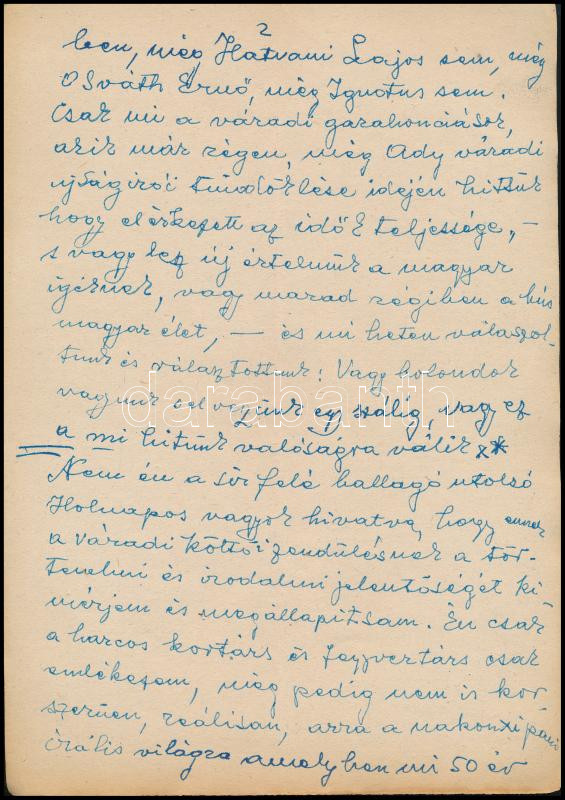 2
ben, még Hatvani Lajos sem, még
Osváth Ernő, még Ignotus sem.
Csak mi a váradi garabonciások,
akik már régen, még Ady váradi
ujságirói tündöklése idején hittük
hogy elérkezett az idők teljessége, —
s vagy lesz új értelmük a magyar
igéknek, vagy marad régiben a bús
magyar élet, — és mi heten válaszol-
tunk és választottunk! Vagy bolondok
vagyunk s elveszünk egy szálig, vagy ez
a mi hitünk valóságra válik x*
Nem én a sir felé ballagó utolsó
Holnapos vagyok hivatva, hogy ennek
a váradi költői zendülésnek a tör-
ténelmi és irodalmi jelentőségét ki
mérjem és megállapitsam. Én csak
a harcos kortárs és fegyvertárs csak
emlékezem, még pedig nem is kor-
szerüen, reálisan, arra a
világra amelyben mi 50 év
darabanth